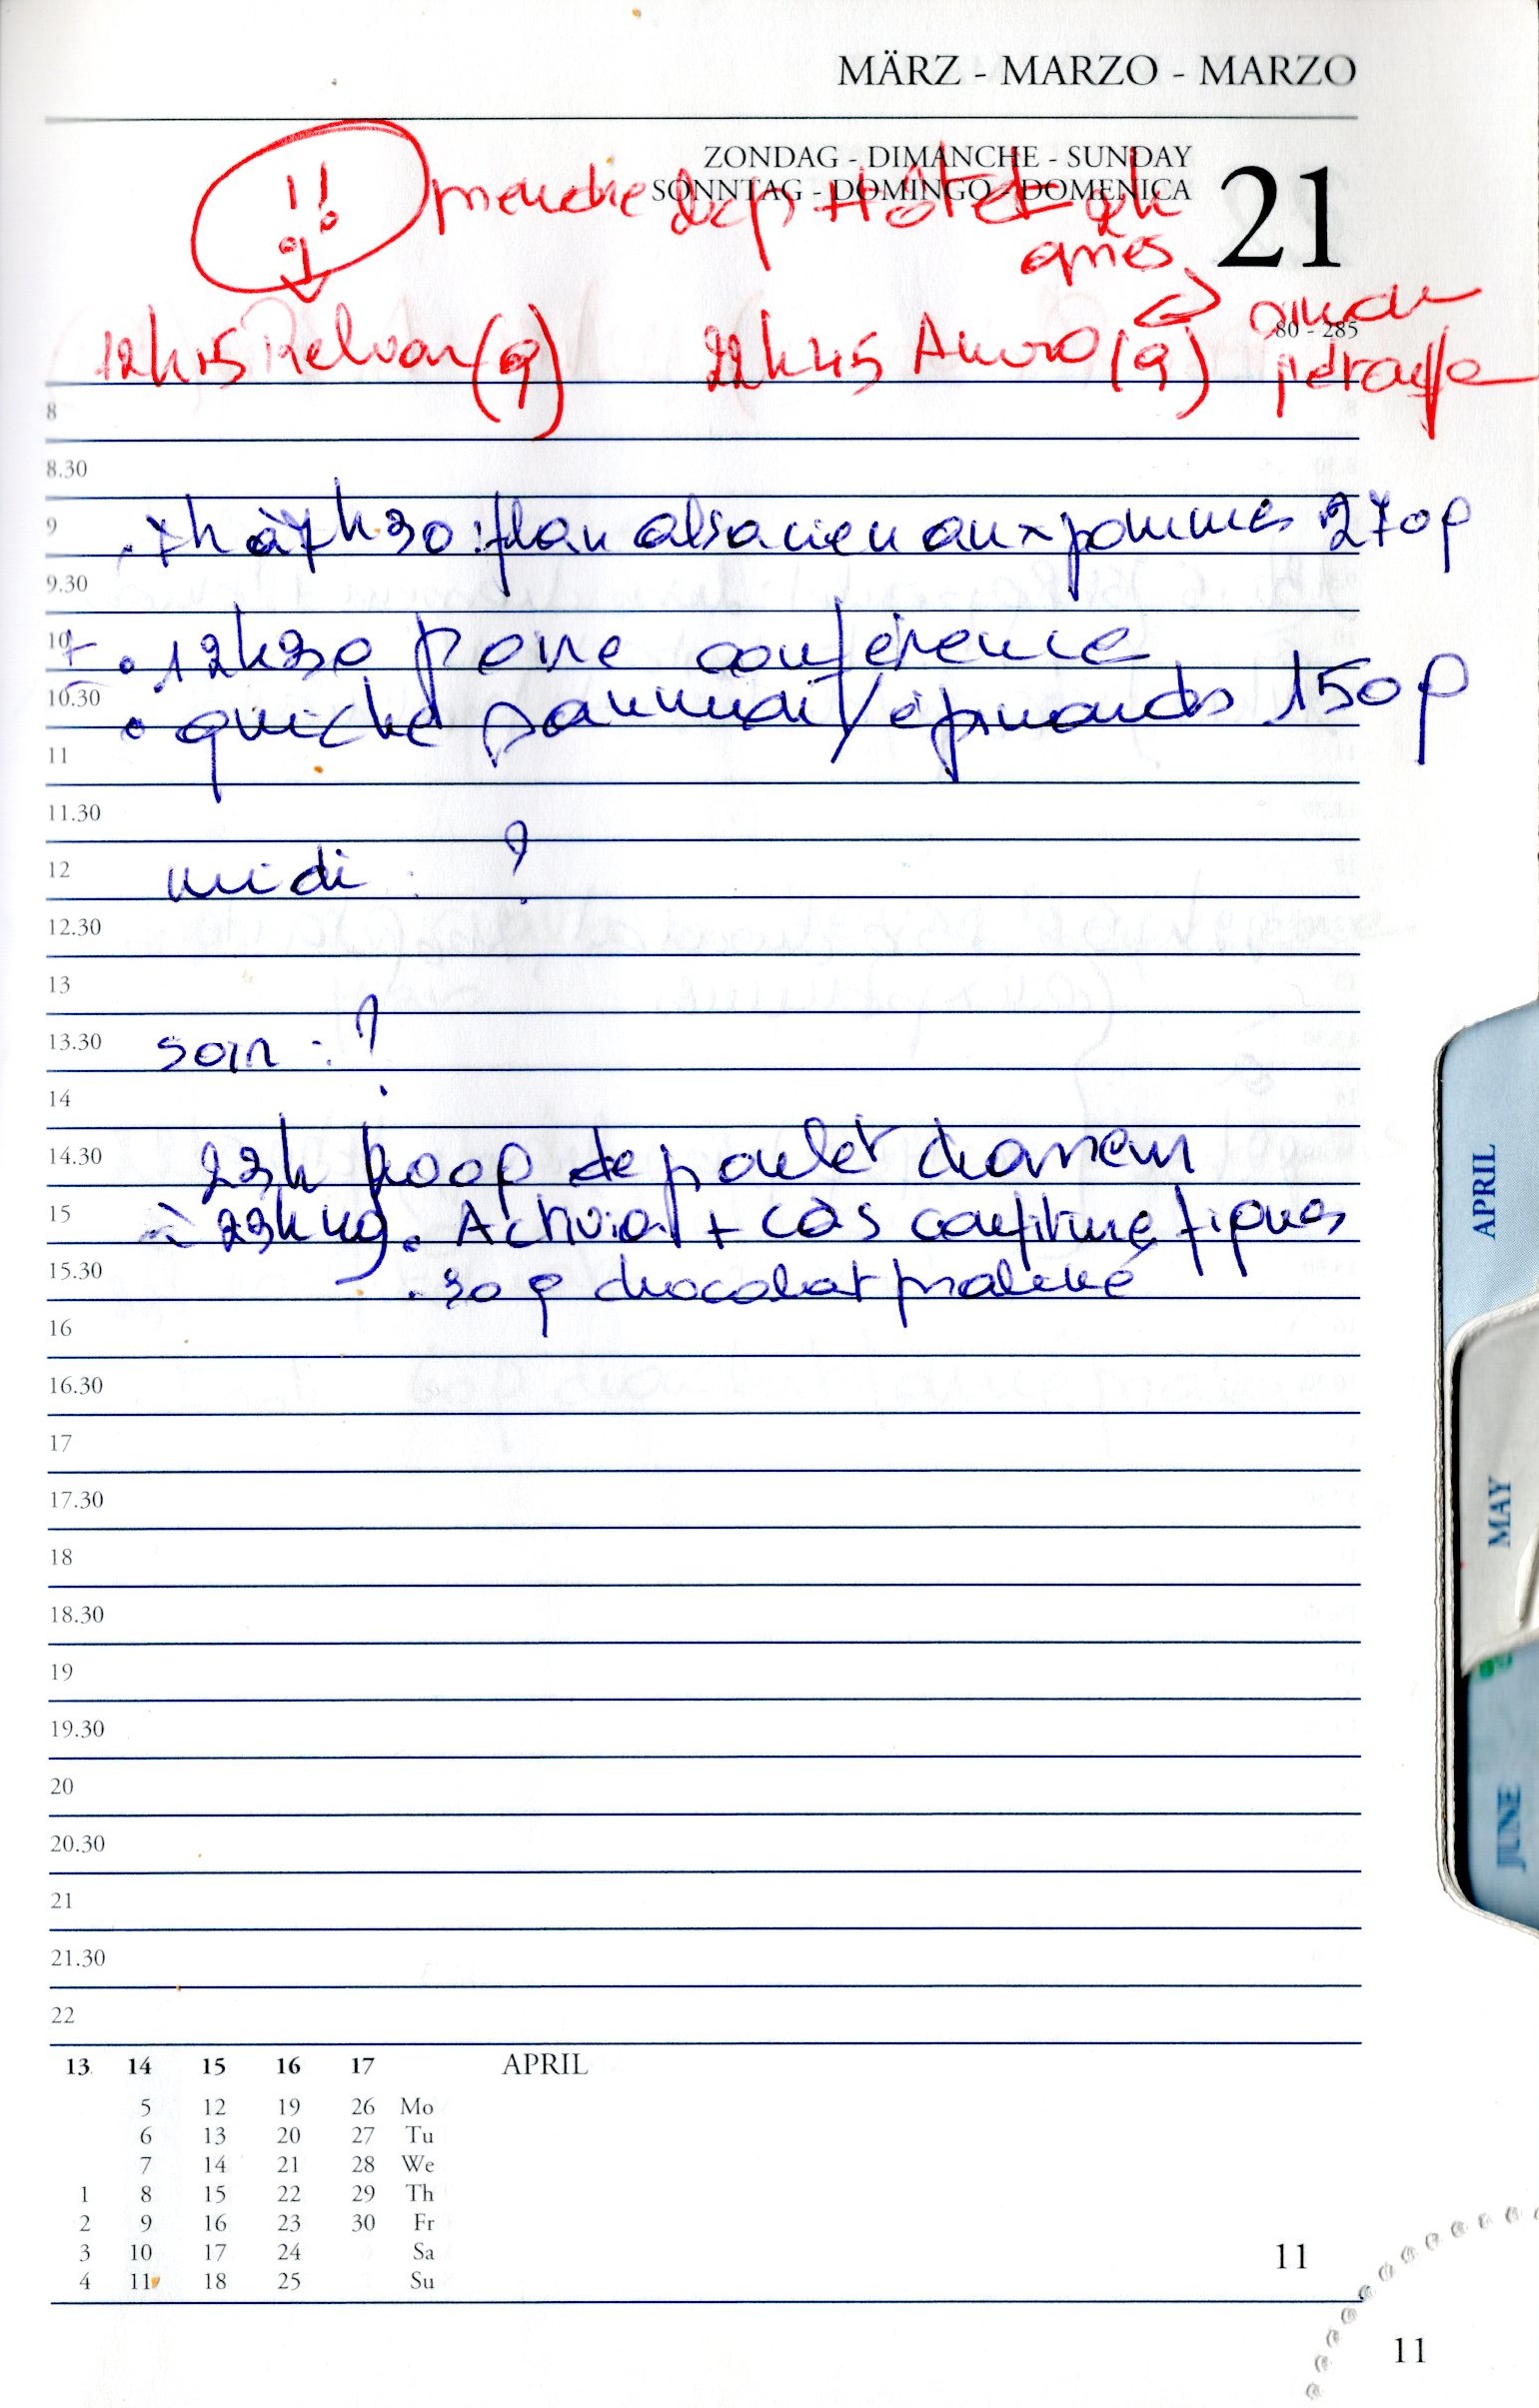 MÄRZ - MARZO - MARZO
ZONDAG - DIMANCHE - SUNDAY
SONNTAG - DOMINGO - DOMENICA
21
80 - 285
!!
Hôtel
12h15 (9) 22h45 (9)
8
8.30
9 . 7h à 7h30 : flan alsacien aux pommes 270g
9.30
10 . 12h30 poire conférence
10.30 . quiche /épinards 150g
11
11.30
12 midi : ?
12.30
13
13.30 soir : ?
14
14.30 23h 100g de poulet
15 à 23h49 . Activia + càs confiture figues
15.30 . 30g chocolat praliné
16
16.30
17
17.30
18
18.30
19
19.30
20
20.30
21
21.30
22
13 14 15 16 17 APRIL
5 12 19 26 Mo
6 13 20 27 Tu
7 14 21 28 We
1 8 15 22 29 Th
2 9 16 23 30 Fr
3 10 17 24 Sa
4 11 18 25 Su
11
11
APRIL
MAY
JUNE